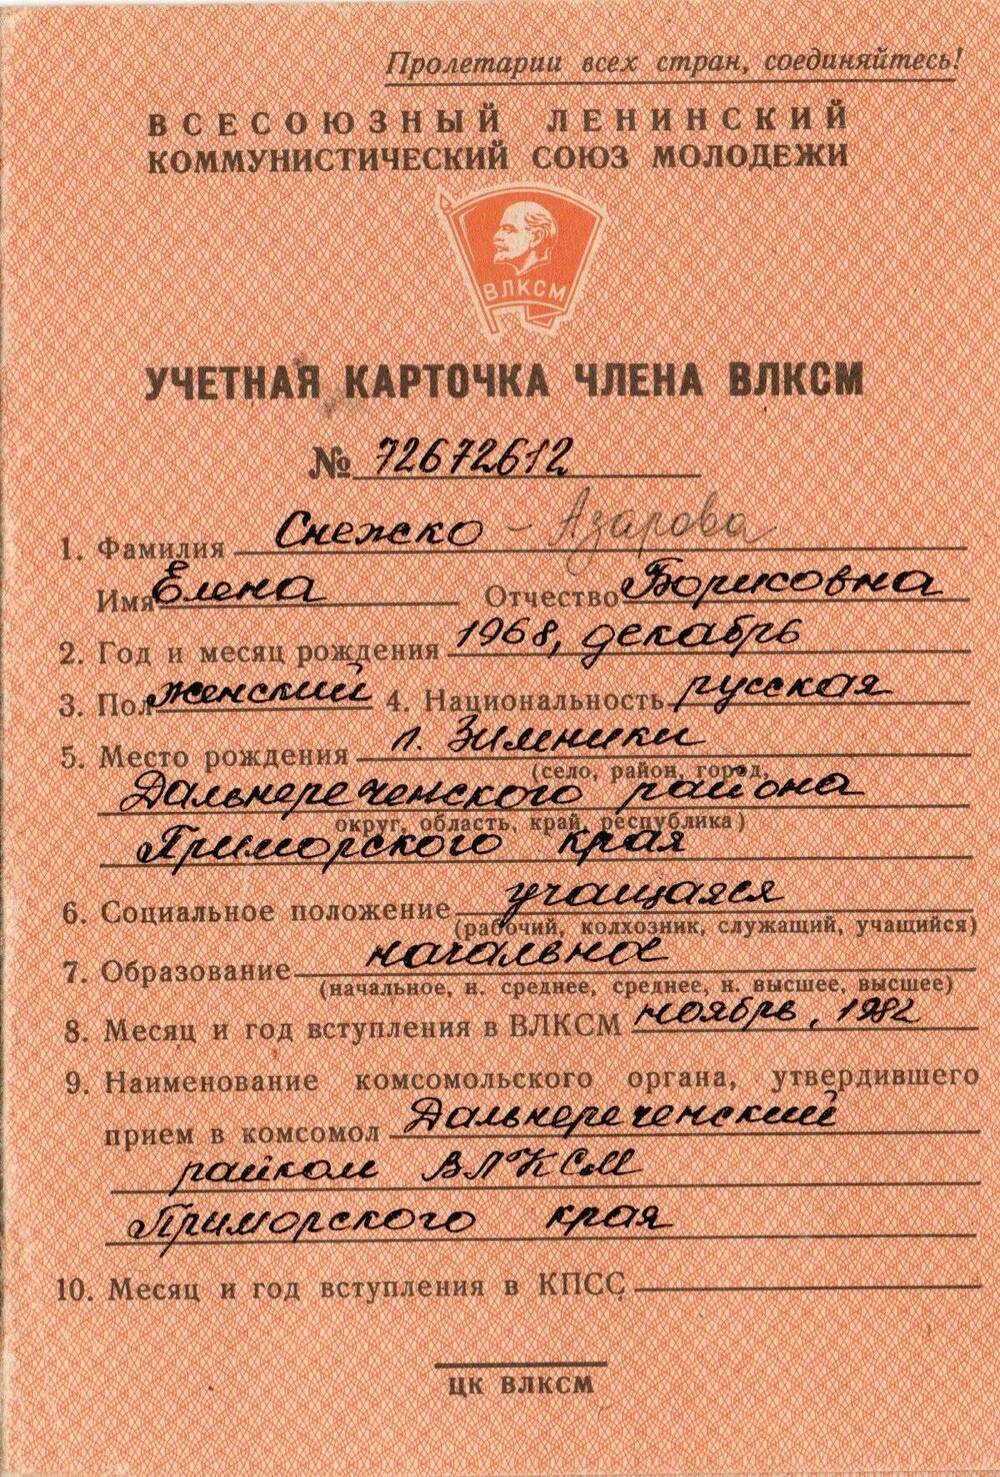 Пролетарии всех стран, соединяйтесь!
ВСЕСОЮЗНЫЙ ЛЕНИНСКИЙ
КОММУНИСТИЧЕСКИЙ СОЮЗ МОЛОДЕЖИ
ВЛКСМ
УЧЕТНАЯ КАРТОЧКА ЧЛЕНА ВЛКСМ
№ 72672612
1. Фамилия Снежско - Азарова
Имя Елена Отчество Борисовна
2. Год и месяц рождения 1968, декабрь
3. Пол женский 4. Национальность русская
5. Место рождения п. Зимники
(село, район, город,
Дальнереченского района
округ, область, край, республика)
Приморского края
6. Социальное положение учащаяся
(рабочий, колхозник, служащий, учащийся)
7. Образование начальное
(начальное, н. среднее, среднее, н. высшее, высшее)
8. Месяц и год вступления в ВЛКСМ ноябрь, 1982
9. Наименование комсомольского органа, утвердившего
прием в комсомол Дальнереченский
райком ВЛКСМ
Приморского края
10. Месяц и год вступления в КПСС
ЦК ВЛКСМ